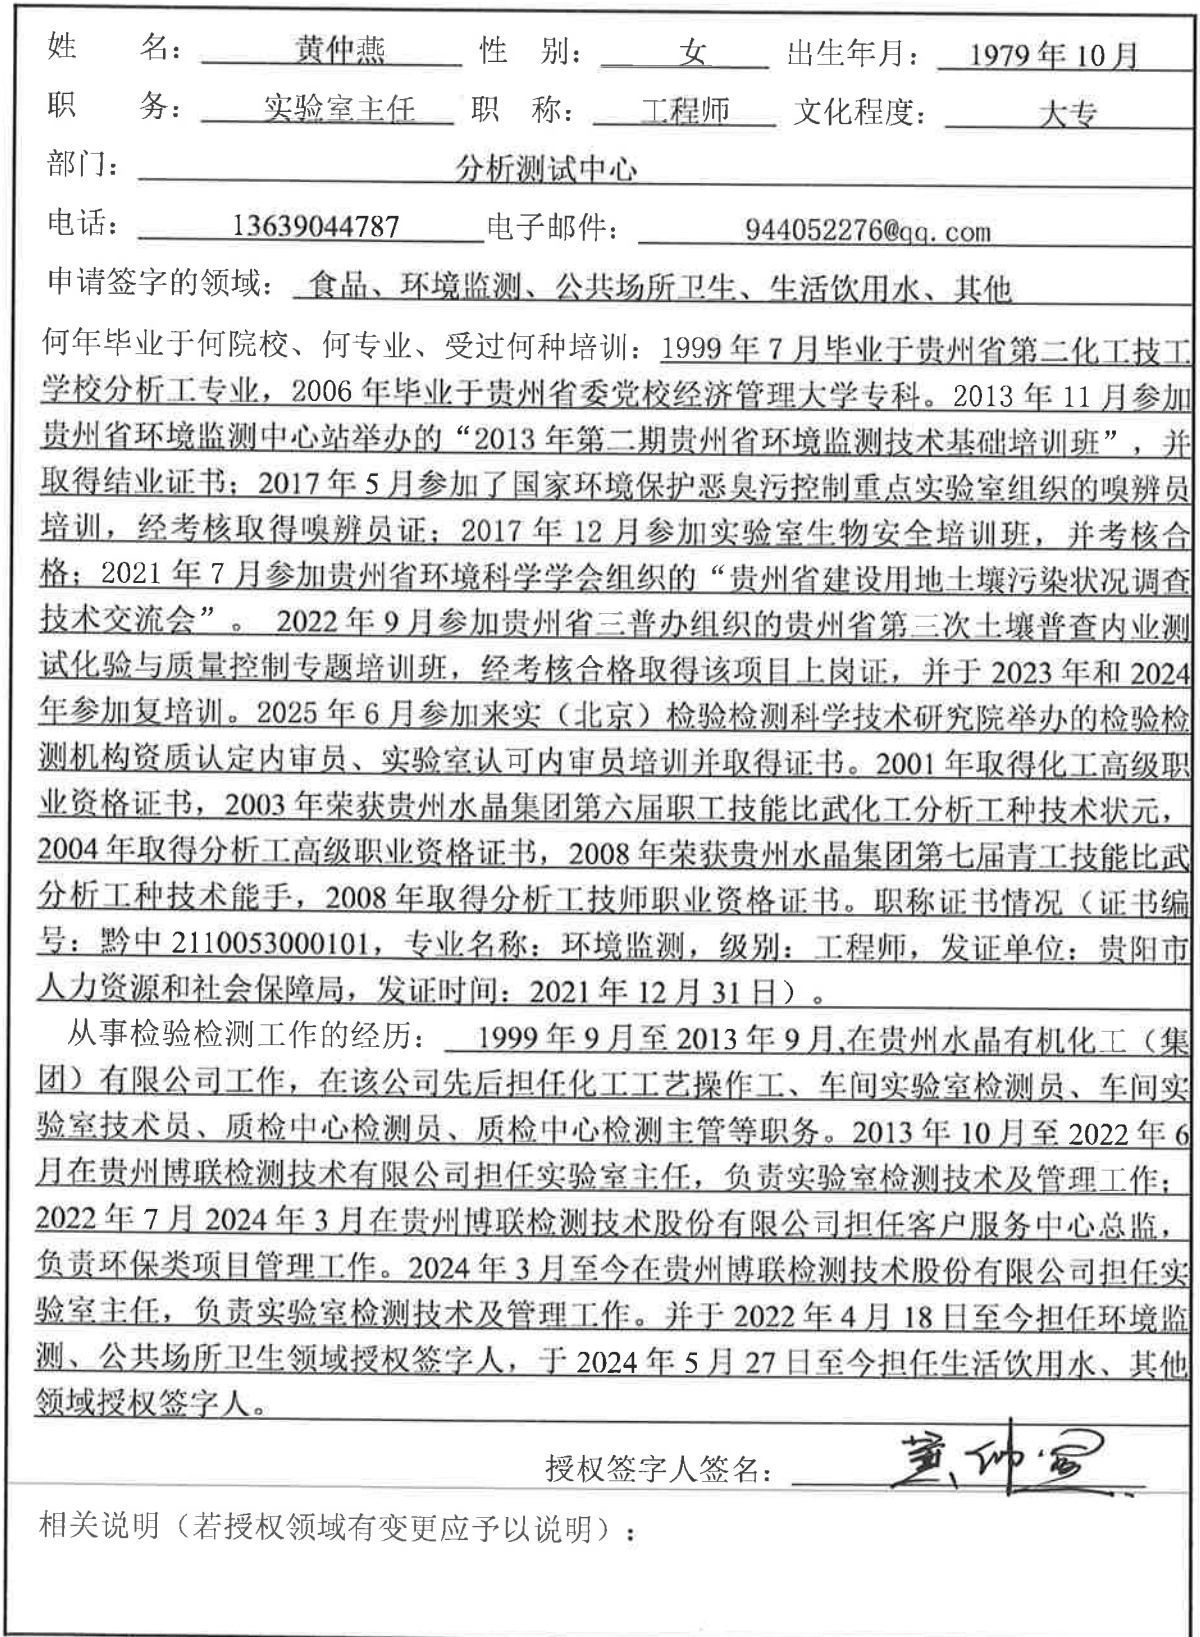 姓 名： 黄仲燕 性 别： 女 出生年月： 1979 年 10 月
职 务： 实验室主任 职 称： 工程师 文化程度： 大专
部门： 分析测试中心
电话： 13639044787 电子邮件： 944052276@qq.com
申请签字的领域： 食品、环境监测、公共场所卫生、生活饮用水、其他
何年毕业于何院校、何专业、受过何种培训：1999 年 7 月毕业于贵州省第二化工技工
学校分析工专业，2006 年毕业于贵州省委党校经济管理大学专科。2013 年 11 月参加
贵州省环境监测中心站举办的“2013 年第二期贵州省环境监测技术基础培训班”，并
取得结业证书；2017 年 5 月参加了国家环境保护恶臭污控制重点实验室组织的嗅辨员
培训，经考核取得嗅辨员证；2017 年 12 月参加实验室生物安全培训班，并考核合
格；2021 年 7 月参加贵州省环境科学学会组织的“贵州省建设用地土壤污染状况调查
技术交流会”。 2022 年 9 月参加贵州省三普办组织的贵州省第三次土壤普查内业测
试化验与质量控制专题培训班，经考核合格取得该项目上岗证，并于 2023 年和 2024
年参加复培训。2025 年 6 月参加来实（北京）检验检测科学技术研究院举办的检验检
测机构资质认定内审员、实验室认可内审员培训并取得证书。2001 年取得化工高级职
业资格证书，2003 年荣获贵州水晶集团第六届职工技能比武化工分析工种技术状元，
2004 年取得分析工高级职业资格证书，2008 年荣获贵州水晶集团第七届青工技能比武
分析工种技术能手，2008 年取得分析工技师职业资格证书。职称证书情况（证书编
号：黔中 2110053000101，专业名称：环境监测，级别：工程师，发证单位：贵阳市
人力资源和社会保障局，发证时间：2021 年 12 月 31 日）。
从事检验检测工作的经历： 1999 年 9 月至 2013 年 9 月,在贵州水晶有机化工（集
团）有限公司工作，在该公司先后担任化工工艺操作工、车间实验室检测员、车间实
验室技术员、质检中心检测员、质检中心检测主管等职务。2013 年 10 月至 2022 年 6
月在贵州博联检测技术有限公司担任实验室主任，负责实验室检测技术及管理工作；
2022 年 7 月 2024 年 3 月在贵州博联检测技术股份有限公司担任客户服务中心总监，
负责环保类项目管理工作。2024 年 3 月至今在贵州博联检测技术股份有限公司担任实
验室主任，负责实验室检测技术及管理工作。并于 2022 年 4 月 18 日至今担任环境监
测、公共场所卫生领域授权签字人，于 2024 年 5 月 27 日至今担任生活饮用水、其他
领域授权签字人。
授权签字人签名： 黄仲燕
相关说明（若授权领域有变更应予以说明）：